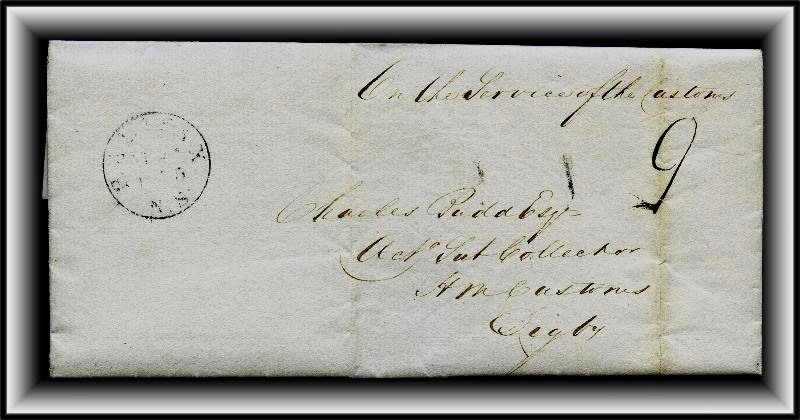 On the Service of the Customs
9
HALIFAX
N.S.
Charles Budd Esqr
Actg Sub Collector
H M Customs
Digby